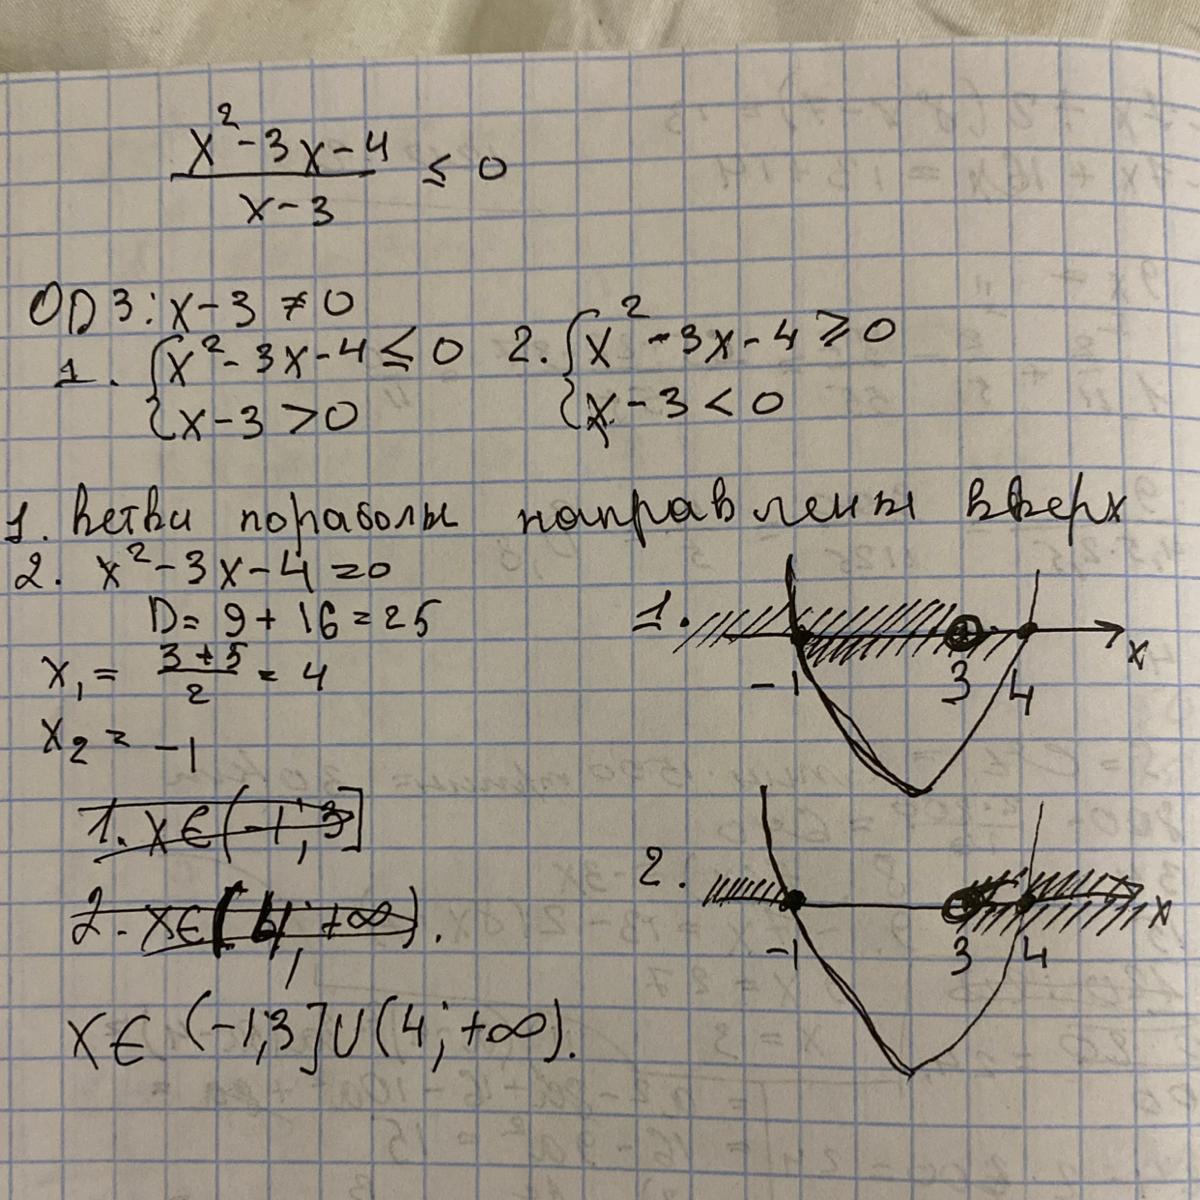 x² - 3x - 4
x - 3
≤ 0
ОДЗ: x - 3 ≠ 0
1. { x² - 3x - 4 ≤ 0
x - 3 > 0
2. { x² - 3x - 4 ≥ 0
x - 3 < 0
1. Ветви пораболы направлены вверх
2. x² - 3x - 4 = 0
D = 9 + 16 = 25
x₁ = (3 + 5)/2 = 4
x₂ = -1
1. x ∈ (-1; 3]
2. x ∈ (4; +∞).
x ∈ (-1; 3] ∪ (4; +∞).
1.
-1 3 4 x
2.
-1 3 4 x